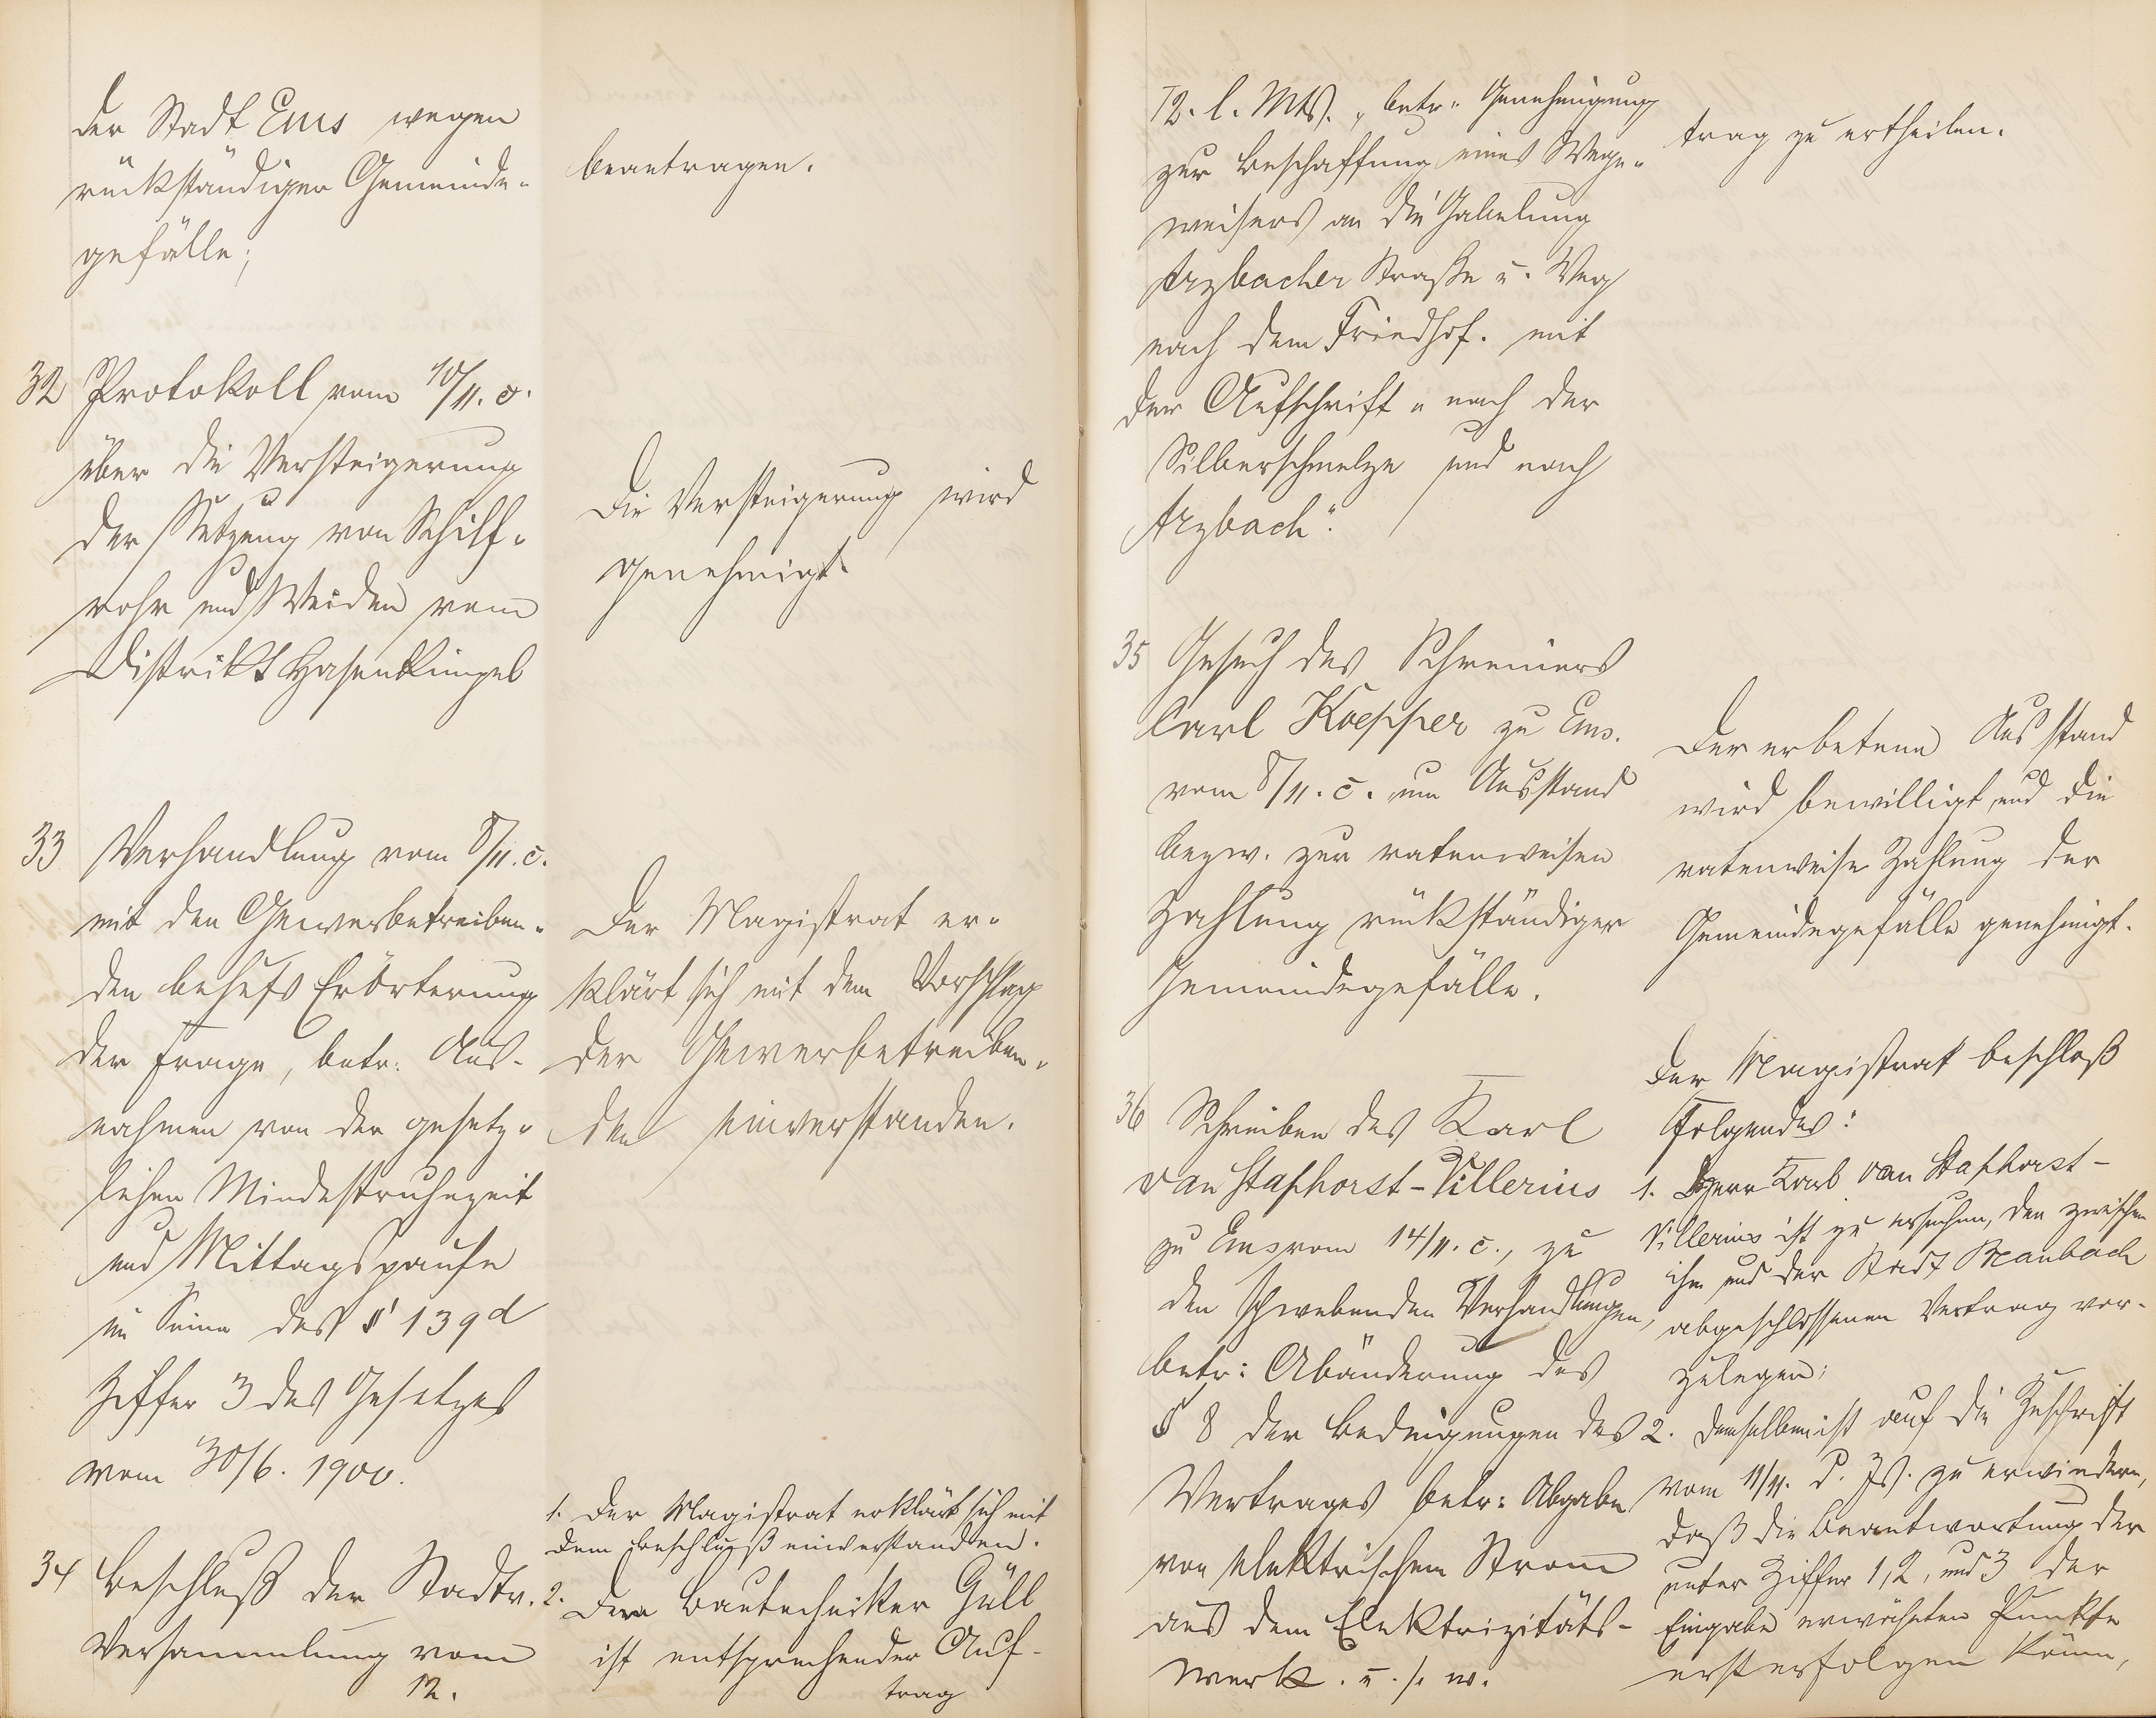 der Stadt Ems wegen
rückständiger Gemeinde-
gefälle;
beantragen.
32 Protokoll vom 10/11. c.
über die Versteigerung
der Nutzung von Schilf-
rohr und Weiden vom
Distrikt Hasenkümpel
Die Versteigerung wird
genehmigt.
33 Verhandlung vom 8/11. c.
mit den Gewerbetreiben-
den behufs Erörterung
der Frage, betr: Aus-
nahmen von der gesetz-
lichen Mindestruhezeit
und Mittagspause
im Sinne des § 139d
Ziffer 3 des Gesetzes
vom 30/6. 1900.
Der Magistrat er-
klärt sich mit dem Vorschlag
der Gewerbetreiben-
den einverstanden.
34 Beschluß der Stadtv.
Versammlung vom
12.
1. Der Magistrat erklärt sich mit
dem Beschluß einverstanden.
2. Dem Bautechniker Güll
ist entsprechender Auf-
trag
12. l. Mts., betr: Genehmigung
zur Beschaffung eines Wege-
weisers an die Gabelung
Arzbacher Straße u. Weg
nach dem Friedhof. mit
der Aufschrift „nach der
Silberschmelze und nach
Arzbach".
trag zu ertheilen.
35 Gesuch des Schreiners
Carl Koepper zu Ems.
vom 8/11. c. um Ausstand
bezw. zur ratenweisen
Zahlung rückständiger
Gemeindegefälle.
Der erbetene Ausstand
wird bewilligt und die
ratenweise Zahlung der
Gemeindegefälle genehmigt.
36 Schreiben des Karl
van Staphorst-Villerius
zu Ems vom 14/11. c., zu
den schwebenden Verhandlungen,
betr: Abänderung des
§ 8 der Bedingungen des
Vertrages betr: Abgabe
von elektrischem Strom
aus dem Elektrizitäts-
werk. u. s. w.
Der Magistrat beschloß
Folgendes:
1. Herr Karl van Staphorst-
Villerius ist zu ersuchen, den zwischen
ihm und der Stadt Braubach
abgeschlossenen Vertrag vor-
zulegen;
2. Demselben ist auf die Zuschrift
vom 11/11. d. Js. zu erwiedern,
daß die Beantwortung der
unter Ziffer 1, 2, und 3 der
Eingabe erwähnten Punkte
erst erfolgen könne,